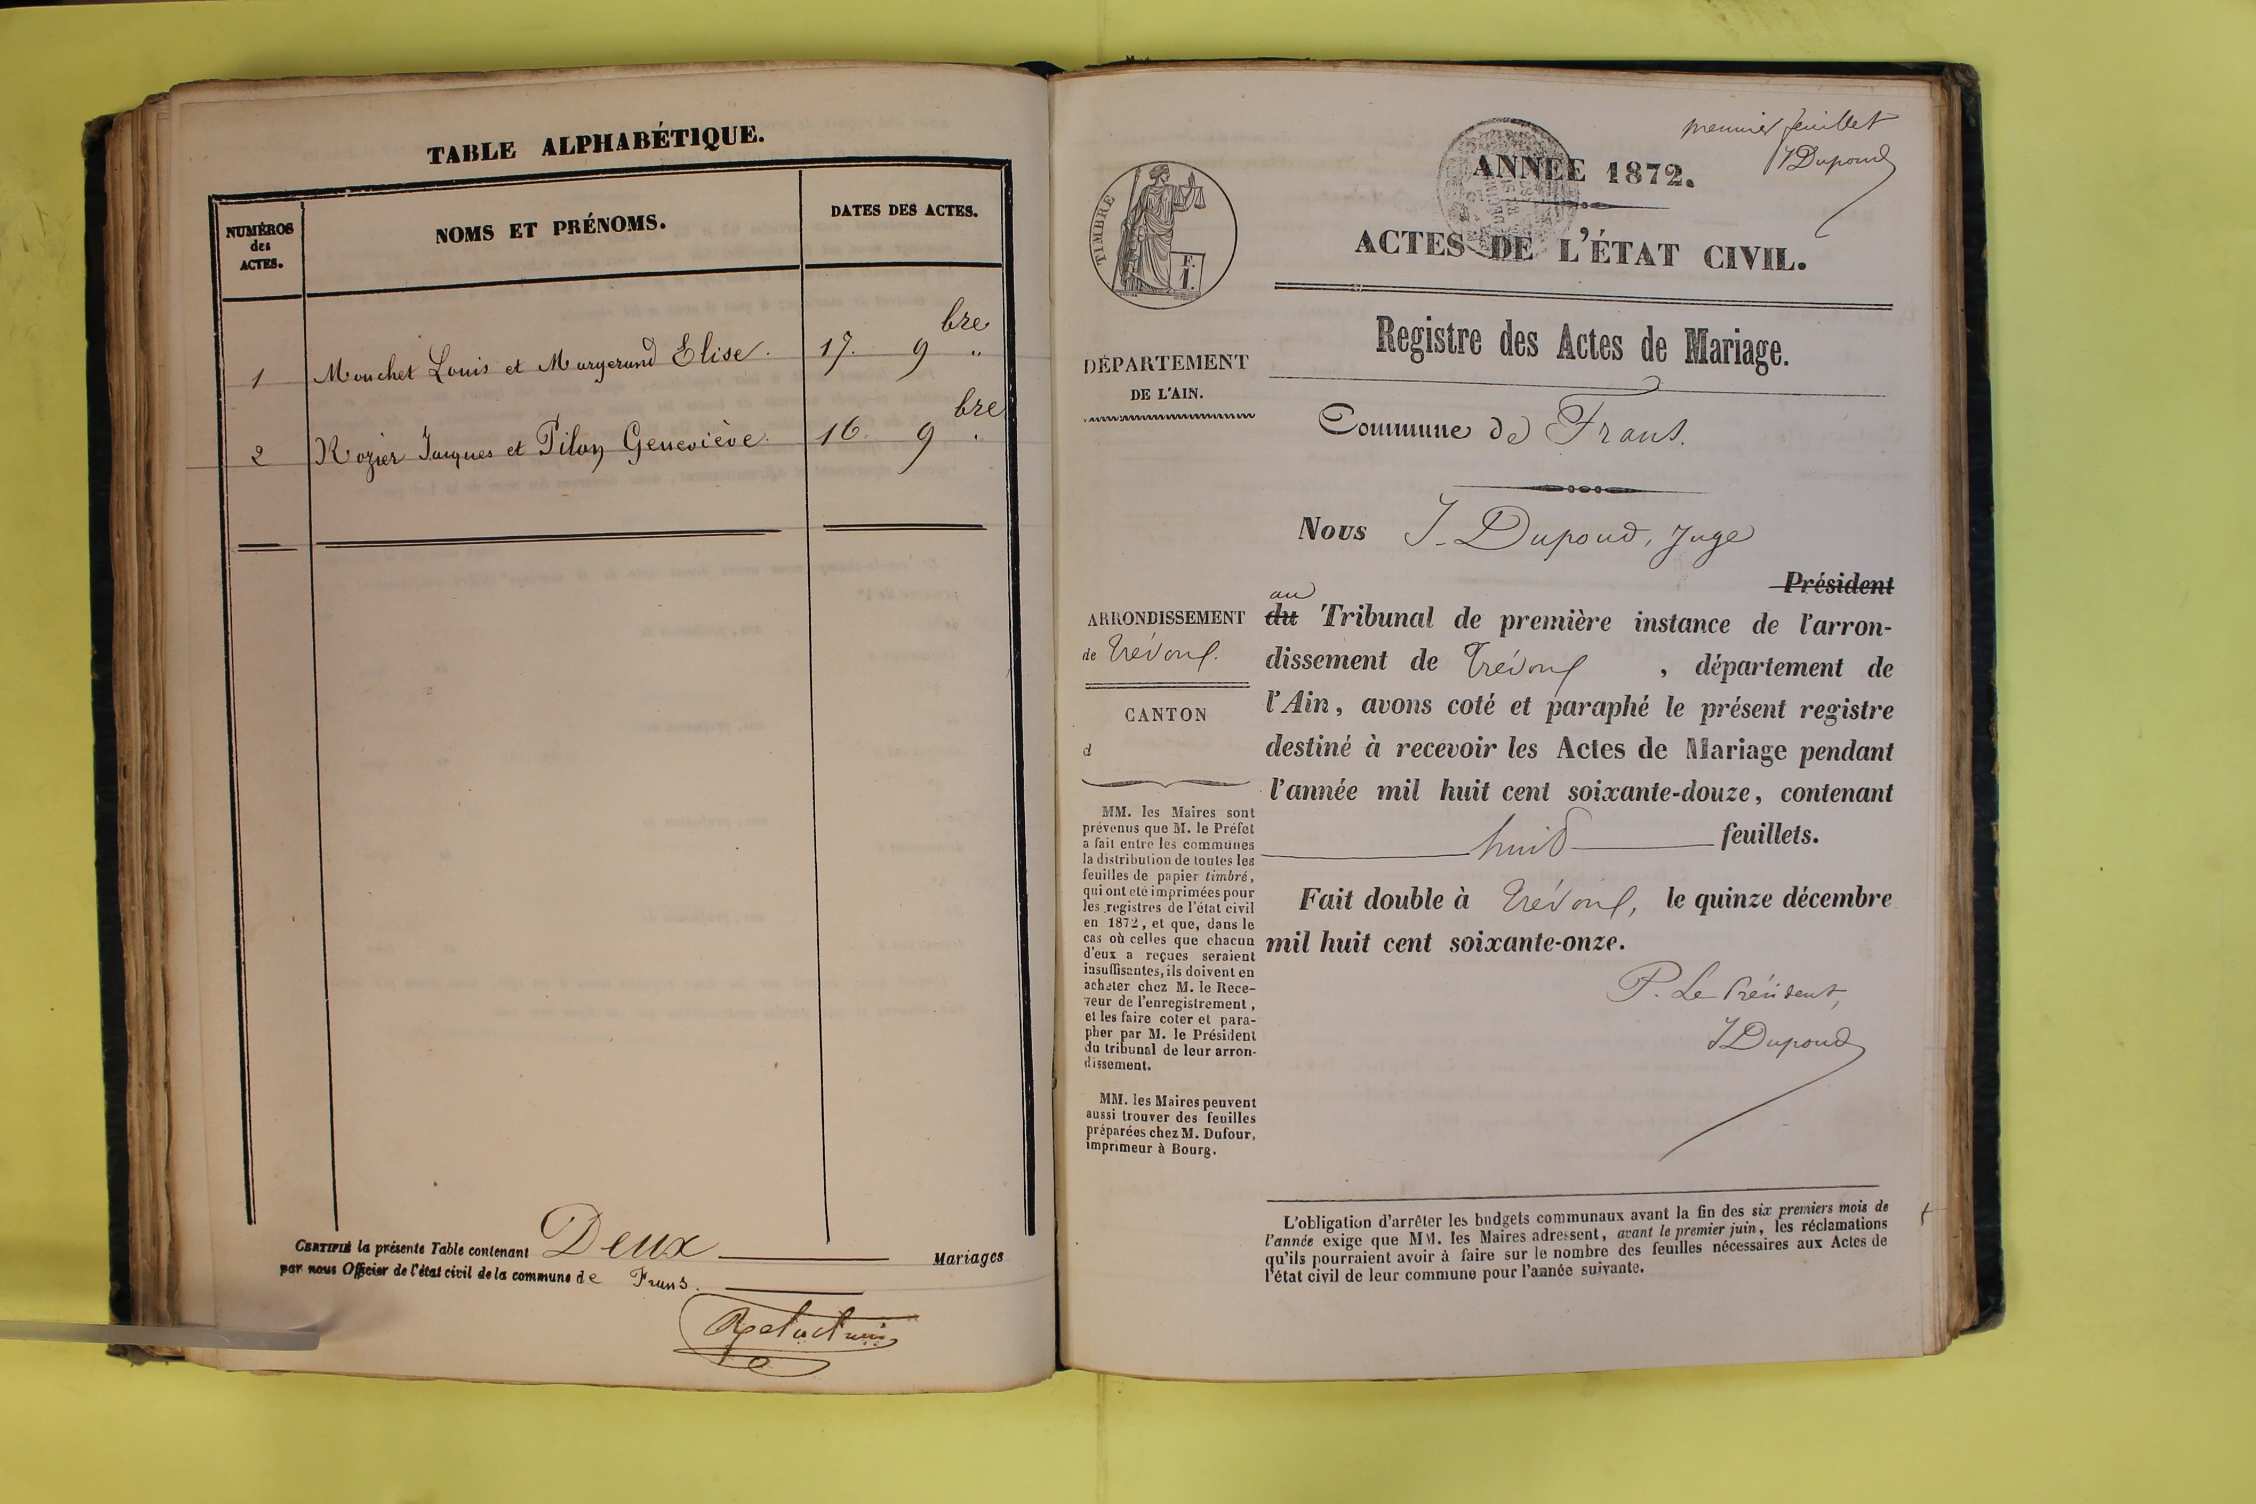 TABLE ALPHABÉTIQUE.
NUMÉROS
des
ACTES.
NOMS ET PRÉNOMS.
DATES DES ACTES.
1 Mouchet Louis et Margerand Elise. 17. 9bre "
2 Rozier Jacques et Pilon Geneviève. 16. 9bre "
CERTIFIÉ la présente Table contenant Deux Mariages
par nous Officier de l'état civil de la commune de Frans.
premier feuillet
J Dupond
TIMBRE
F.
1.
ANNÉE 1872.
ACTES DE L'ÉTAT CIVIL.
Registre des Actes de Mariage.
DÉPARTEMENT
DE L'AIN.
Commune de Frans.
Nous J. Dupond, Juge
Président
au
du Tribunal de première instance de l'arron-
dissement de Trévoux, département de
l'Ain, avons coté et paraphé le présent registre
destiné à recevoir les Actes de Mariage pendant
l'année mil huit cent soixante-douze, contenant
huit feuillets.
Fait double à Trévoux, le quinze décembre
mil huit cent soixante-onze.
P. Le Président,
J Dupond
ARRONDISSEMENT
de Trévoux.
CANTON
d
MM. les Maires sont
prévenus que M. le Préfet
a fait entre les communes
la distribution de toutes les
feuilles de papier timbré,
qui ont été imprimées pour
les registres de l'état civil
en 1872, et que, dans le
cas où celles que chacun
d'eux a reçues seraient
insuffisantes, ils doivent en
acheter chez M. le Rece-
veur de l'enregistrement,
et les faire coter et para-
pher par M. le Président
du tribunal de leur arron-
dissement.
MM. les Maires peuvent
aussi trouver des feuilles
préparées chez M. Dufour,
imprimeur à Bourg.
L'obligation d'arrêter les budgets communaux avant la fin des six premiers mois de
l'année exige que MM. les Maires adressent, avant le premier juin, les réclamations
qu'ils pourraient avoir à faire sur le nombre des feuilles nécessaires aux Actes de
l'état civil de leur commune pour l'année suivante.